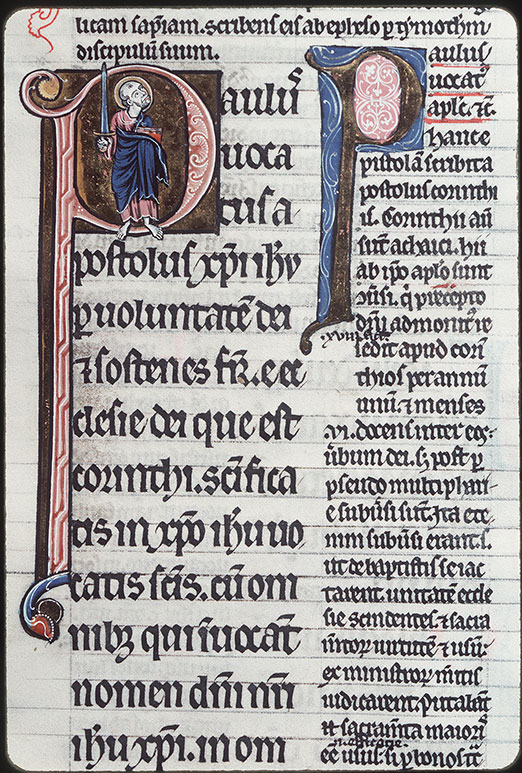 lucam sap̄iam. scribens eis ab epheso ꝑ tymotheū
discipulū suum.
Paulus
uoca
tus a
postolus xp̄i ih̄u
ꝑ uoluntatē dei
⁊ sostenes fr̄. ecc
clesie dei que est
corinthi. sc̄ifica
tis in xp̄o ih̄u uo
catis sc̄is. cū om
nibꝫ qui īuocāt
nomen dn̄i nr̄i
ih̄u xp̄i. in om
Paulus
uocat᷒
apl̄c. ⁊c̄.
hanc e
pistolā scribit a
postolus corinthi
is. Corinthii aū
sūt achaici. hii
ab ip̄o aplō sunt
precepto
dn̄i admonit᷒ re
sedit apud cori
thios per annū
unū. ⁊ menses
.vi. docens inter eos
ūbum dei. post ꝑ
pseudo multiphari
e subūsi sūt. Ita ete
nim subūsi erant.
ut de baptistis se iac
tarent. unitatē eccle
sie scindentes. ⁊ sacra
uirtutē ⁊ usū
ex ministroꝝ m̄itis
iudicarent. putabāt
sacram̄ta maioris
ēē usus. si ꝑ bonos